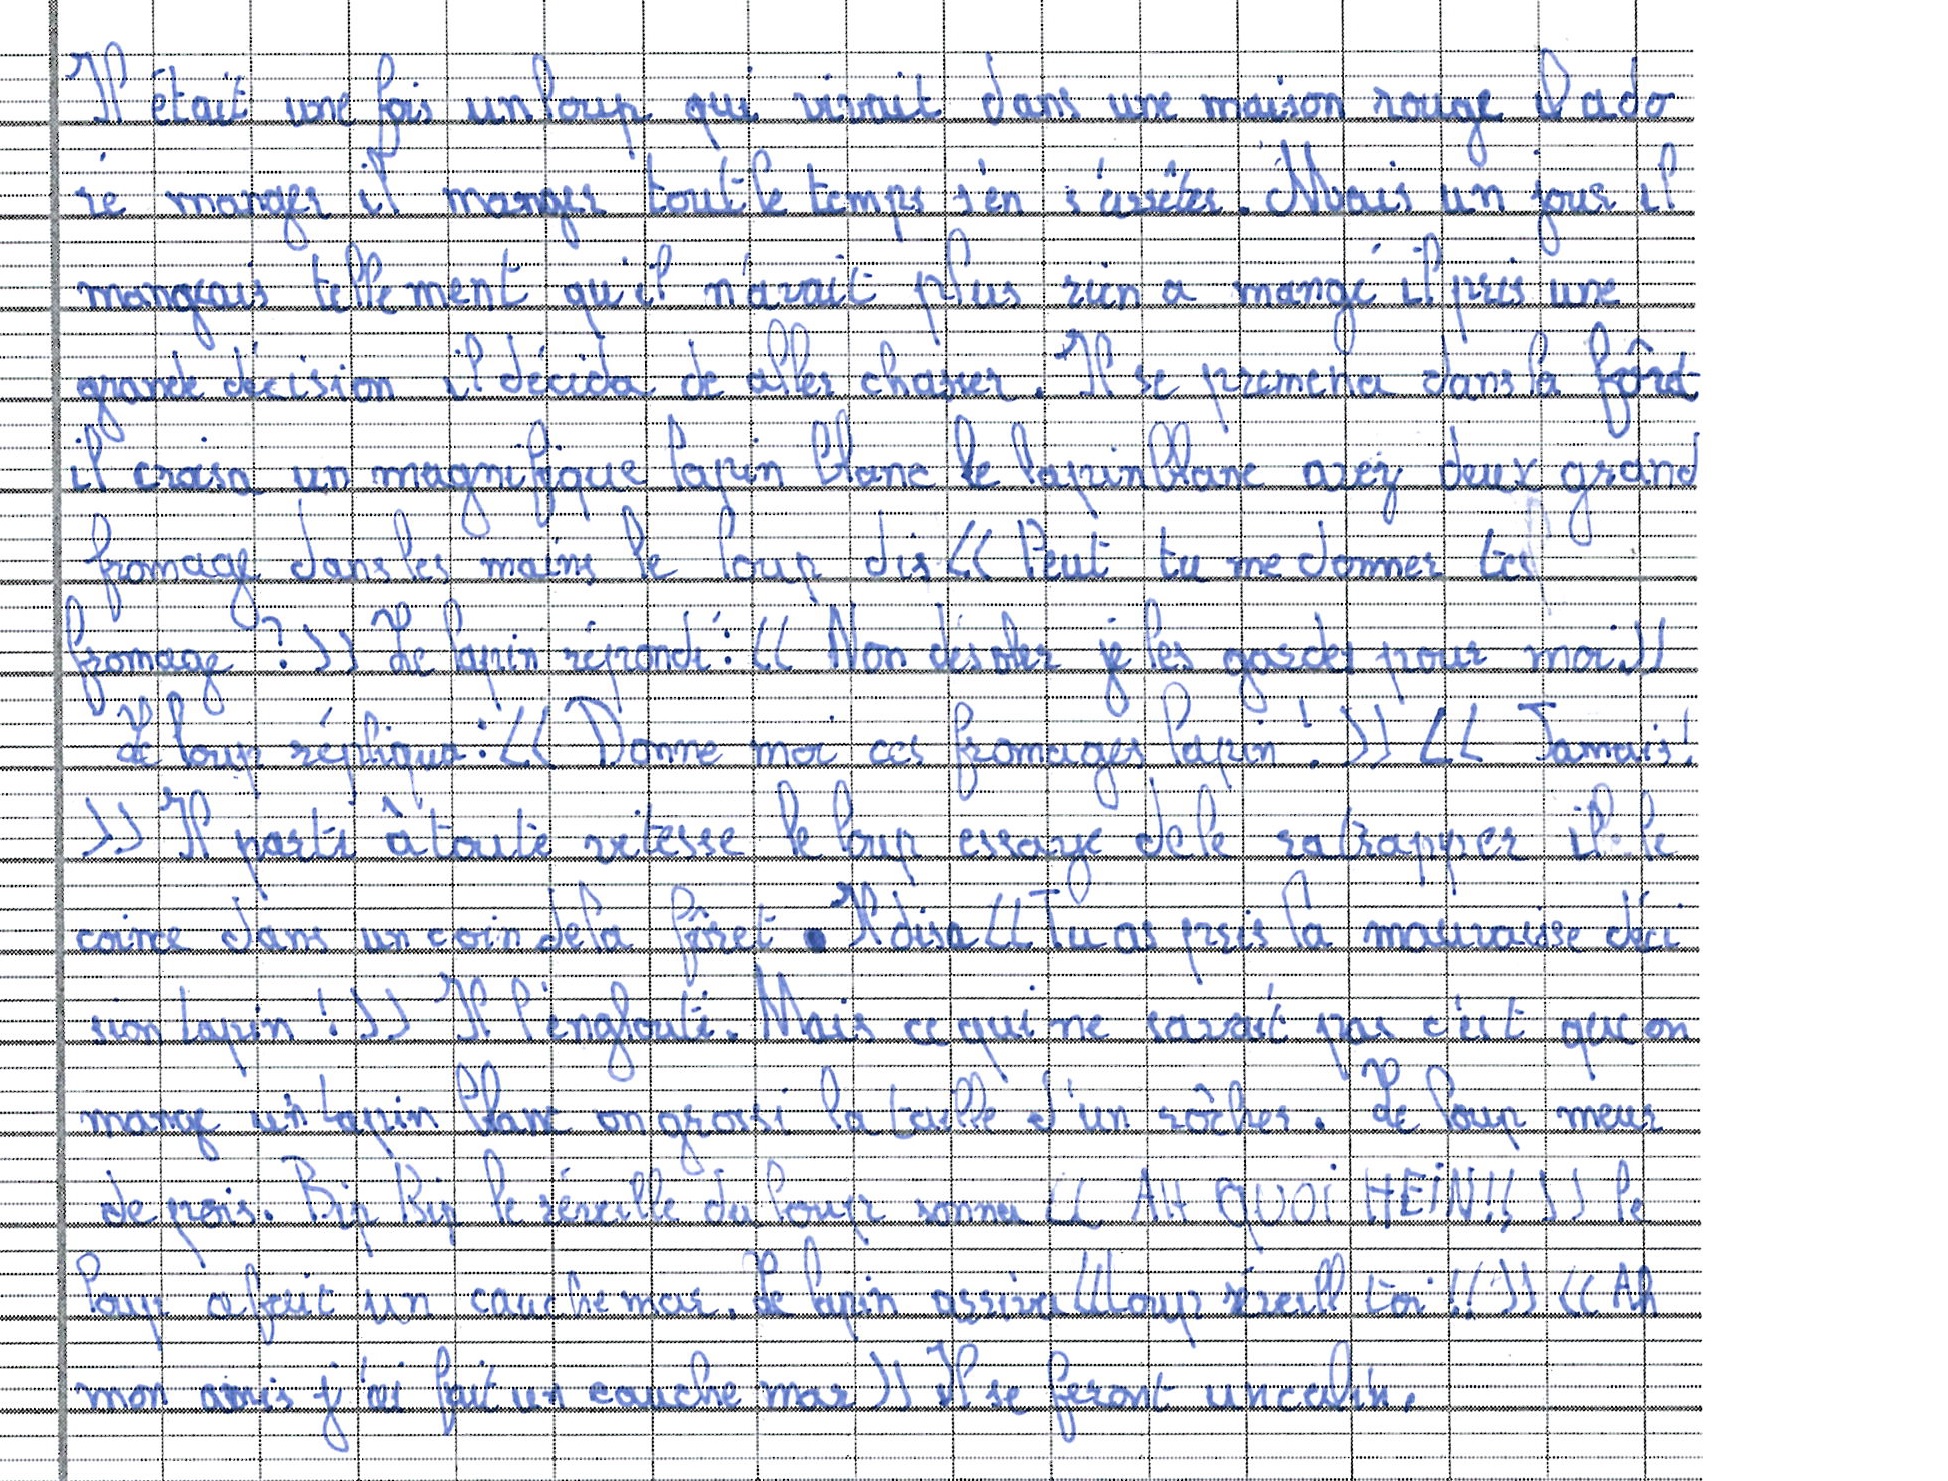 Il était une fois un loup qui vivait dans une maison rouge il ado
ré manger il manger tout le temps s'en s'arrêter. Mais un jour il
mangeais tellement qu'il n'avait plus rien a mangé il pris une
grande décision il décida de aller chasser. Il se promena dans la fôret
il croisa un magnifique lapin blanc le lapin blanc avez deux grand
fromage dans les mains le loup dis << Peut tu me donner tes
fromage ? >> Le lapin répondi : << Non désoler je les gardes pour moi >>
Le loup répliqua : << Donne moi ces fromages lapin ! >> << Jamais !
>> Il parti à toute vitesse le loup essaye de le ratrapper il le
coince dans un coin de la fôret . Il disa << Tu as pris la mauvaisse déci
sion lapin ! >> Il l'englouti. Mais ce qui ne savait pas c'est que on
mange un lapin blanc on grossi la taille d'un rôcher. Le loup meur
de pois. Bip Bip le réveille du loup sonna << AH QUOI HEIN!! >> le
loup a fait un cauche mar. Le lapin arriva << Loup réveill toi !! >> << Ah
mon amis j'ai fait un cauche mar >> Il se feront un calin.